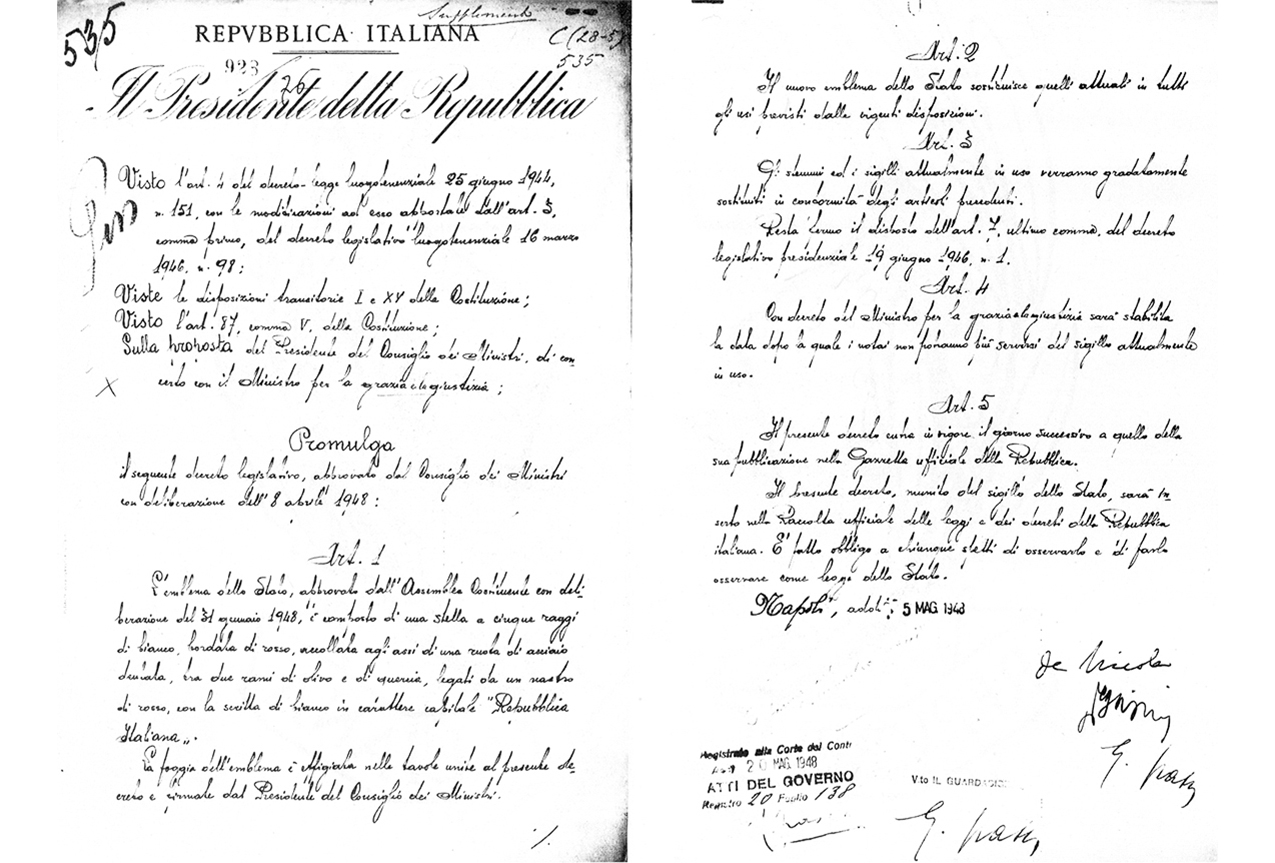 535
Supplemento
REPVBBLICA ITALIANA
C (28-5)
535
923
26
Il Presidente della Repubblica
Visto l'art. 4 del decreto-legge luogotenenziale 25 giugno 1944,
n. 151, con le modificazioni ad esso apportate dall'art. 3,
comma primo, del decreto legislativo luogotenenziale 16 marzo
1946, n. 98;
Viste le disposizioni transitorie I e XV della Costituzione;
Visto l'art. 87, comma V, della Costituzione;
Sulla proposta del Presidente del Consiglio dei Ministri, di con
certo con il Ministro per la grazia e la giustizia;
X
Promulga
il seguente decreto legislativo, approvato dal Consiglio dei Ministri
con deliberazione dell'8 aprile 1948:
Art. 1
L'emblema dello Stato, approvato dall'Assemblea Costituente con deli-
berazione del 31 gennaio 1948, è composto di una stella a cinque raggi
di bianco, bordata di rosso, accollata agli assi di una ruota di acciaio
dentata, tra due rami di olivo e di quercia, legati da un nastro
di rosso, con la scritta di bianco in carattere capitale "Repubblica
Italiana„.
La foggia dell'emblema è effigiata nelle tavole unite al presente de-
creto e firmate dal Presidente del Consiglio dei Ministri.
./.
Art. 2
Il nuovo emblema dello Stato sostituisce quelli attuali in tutti
gli usi previsti dalle vigenti disposizioni.
Art. 3
Gli stemmi ed i sigilli attualmente in uso verranno gradatamente
sostituiti in conformità degli articoli precedenti.
Resta fermo il disposto dell'art. 7, ultimo comma, del decreto
legislativo presidenziale 19 giugno 1946, n. 1.
Art. 4
Con decreto del Ministro per la grazia e la giustizia sarà stabilita
la data dopo la quale i notai non potranno più servirsi del sigillo attualmente
in uso.
Art. 5
Il presente decreto entra in vigore il giorno successivo a quello della
sua pubblicazione nella Gazzetta ufficiale della Repubblica.
Il presente decreto, munito del sigillo dello Stato, sarà in-
serto nella Raccolta ufficiale delle leggi e dei decreti della Repubblica
italiana. È fatto obbligo a chiunque spetti di osservarlo e di farlo
osservare come legge dello Stato.
Napoli, addì 5 MAG. 1948
de Nicola
G. Grassi
Registrato alla Corte dei Conti
20 MAG. 1948
ATTI DEL GOVERNO
Registro 20 Foglio 138
V.to IL GUARDASIGILLI
G. Grassi